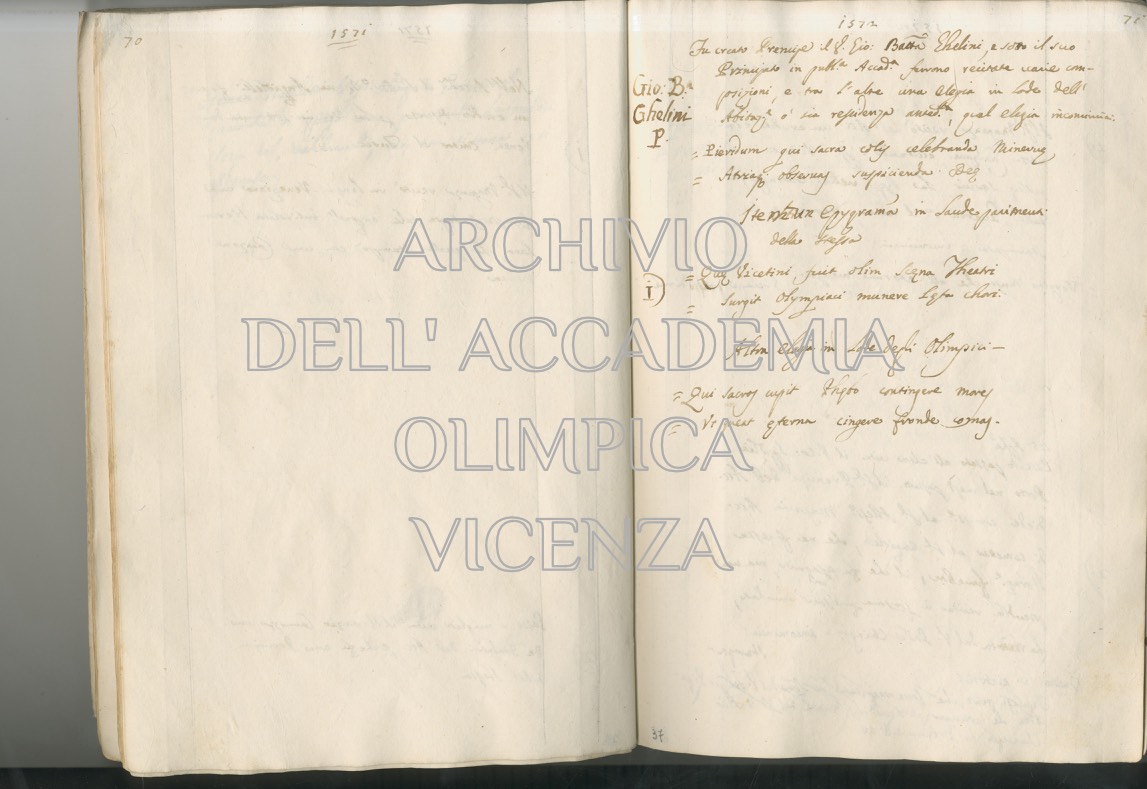 70
1571
1572
71
Fu creato Prencipe il S. Gio: Batta Ghelini, e sotto il suo
Prinipato in pubb.ca Accad.a furono recitate varie com-
posizioni, e tra l'altre una elegia in lode dell'
o' sia residenza, qual elegia incomincia:
Gio: B.a
Ghelini
P.
= Pieridum qui sacra colis celebranda Minervę
= observas suspicienda Deę
Item un Epygrama in laude paviment.
della stessa
I
= Quę Vicetini fuit olim scęna Theatri
= surgit Olympiaci munere lęta chori.
Altra elegia in lode degli Olimpici —
= Qui sacros cupit contingere mores
= Ut ęterna cingere fronde comas.
37
ARCHIVIO
DELL' ACCADEMIA
OLIMPICA
VICENZA